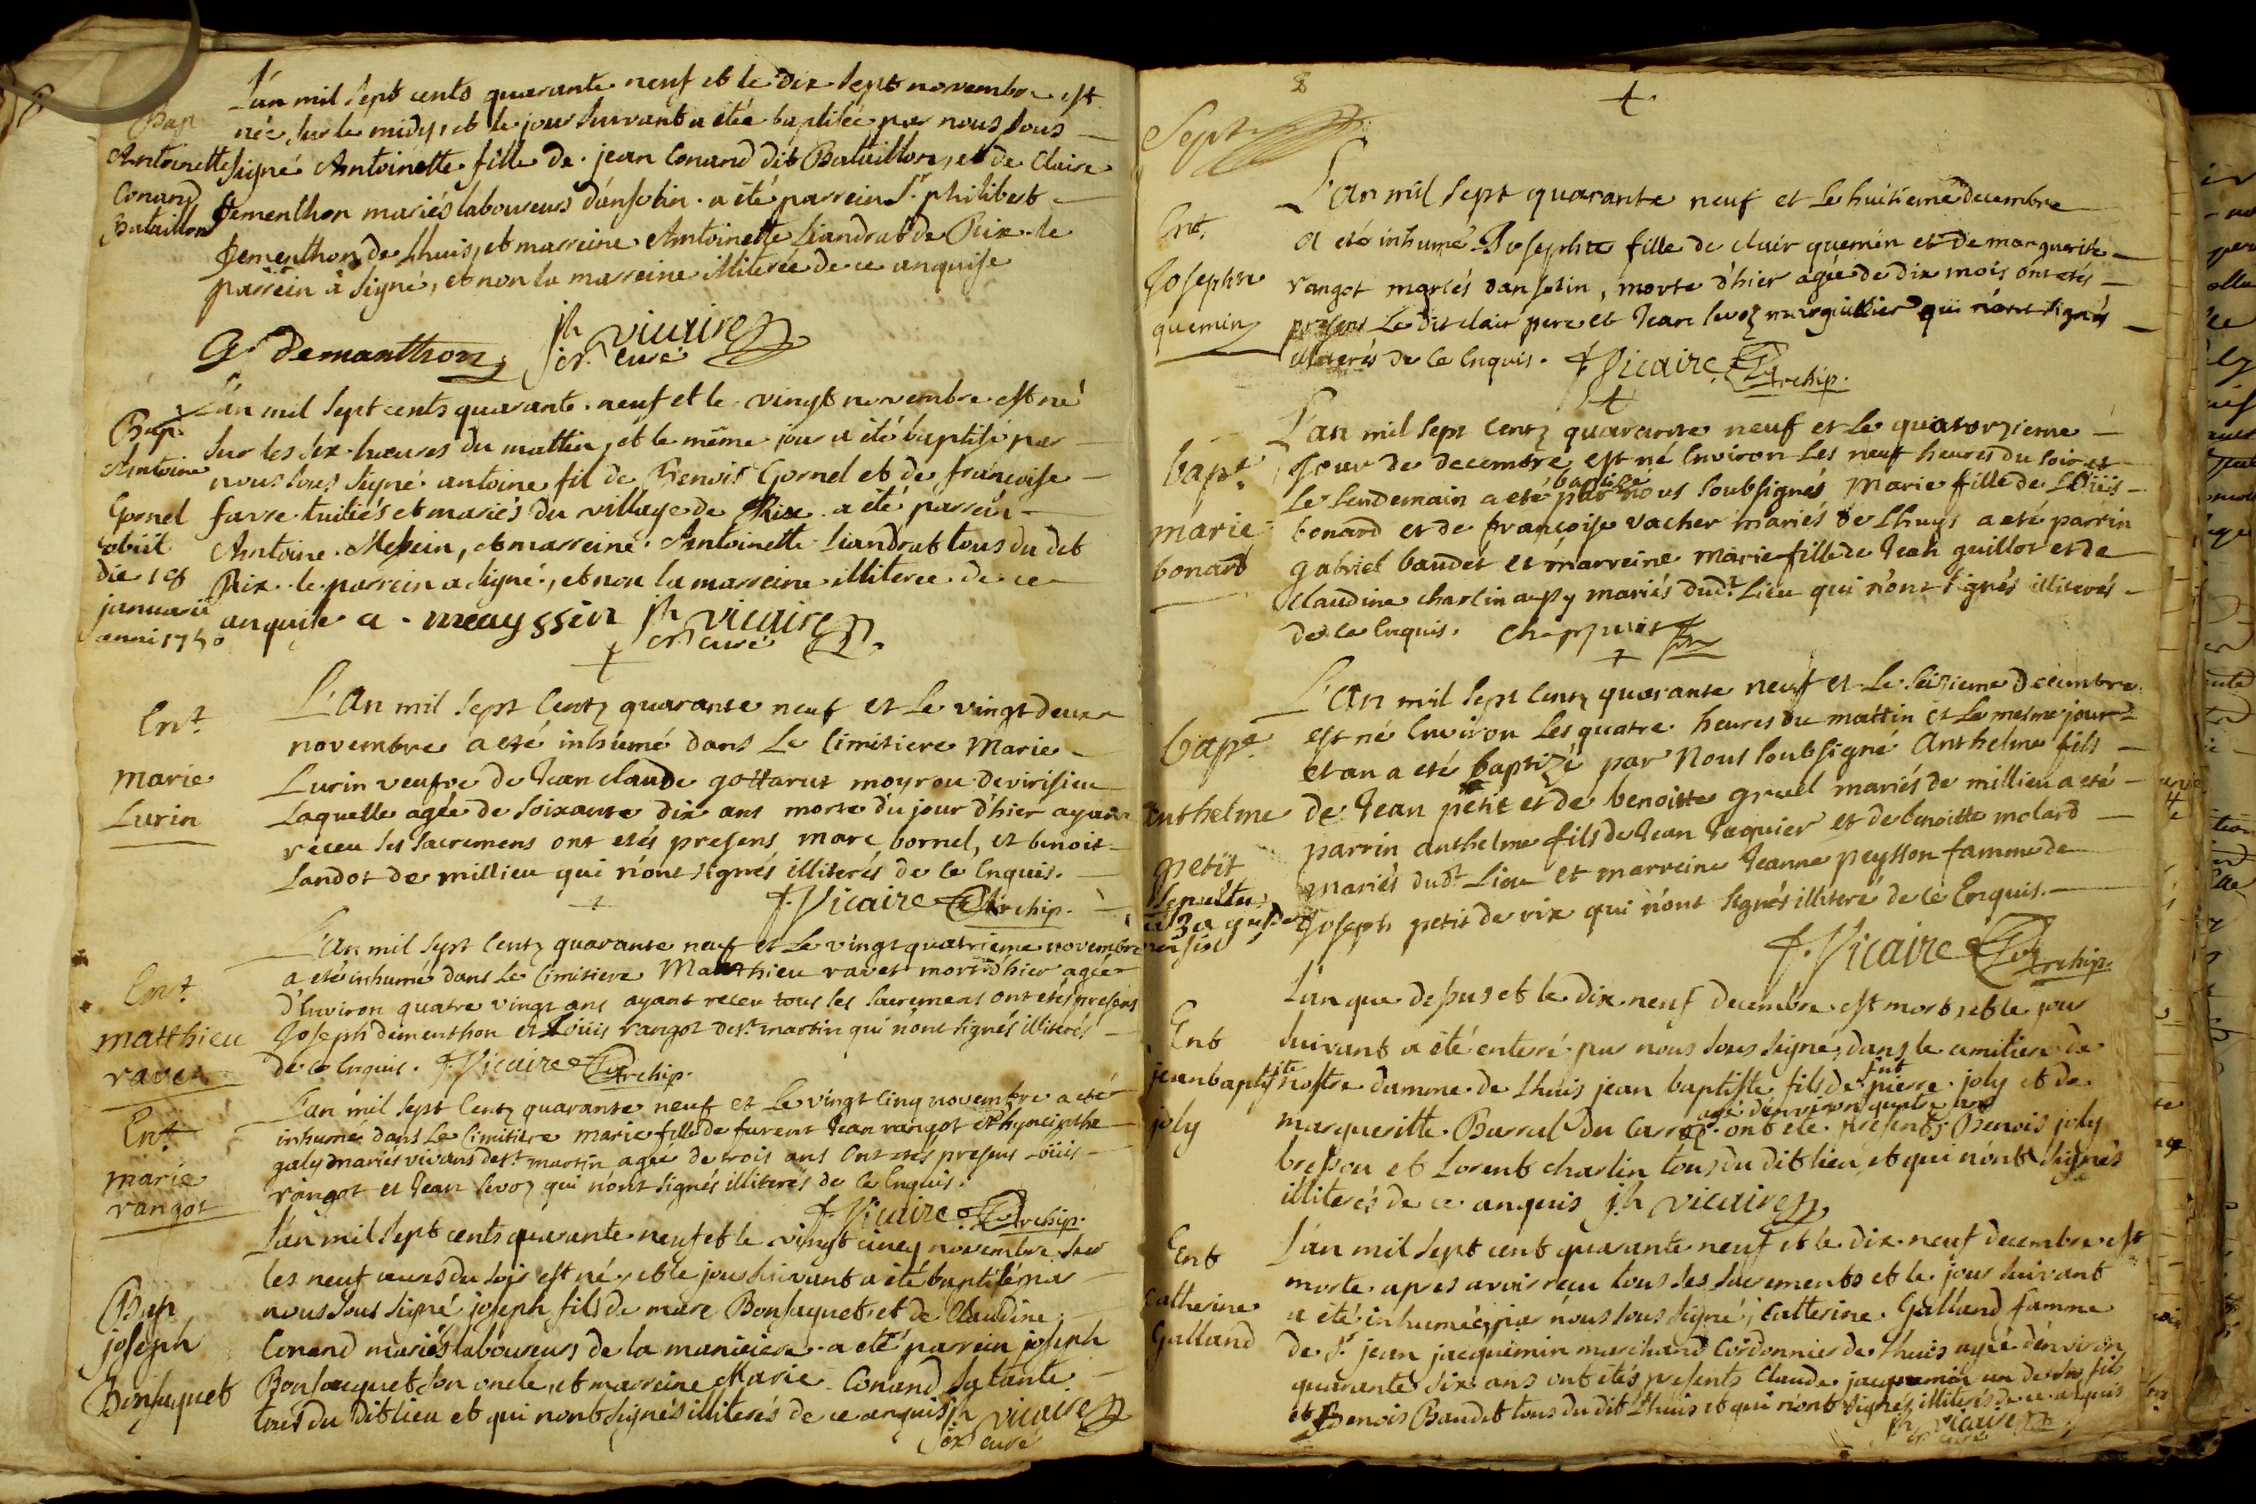 L'an mil sept cents quarante neuf et le dix sept novembre est
Bap née, sur le midy, et le jour suivant a étée baptisée par nous sous
Antoinette signé Antoinette fille de jean Conand dit Bataillon, et de Claire
Conand Dementhon mariés laboureurs d'ansolin. a été parrein Sr. philibert
Bataillon Dementhon de Lhuis, et marreine Antoinette Liandrat de Rix. le
parrein a signé, et non la marreine illiterée de ce anquise
G. Demanthon jh vicaire
cr. curé
L'an mil sept cents quarante. neuf et le. vingt novembre est né
Bap. sur les six heures du mattin, et le même jour a été baptisé par
Antoine nous sous signé antoine fil de Benoit Gornel et de francoise
Gornel favre tuiliés et mariés du village de Rix a été parrein
obiit Antoine. Messein, et marreine. Antoinette Liandrat tous du dit
die 18 Rix. le parrein a signé, et non la marreine illiteree de ce
januarii anquise a. meayssin jh vicaire
anni 1750 cr. curé
L'An mil sept Centz quarante neuf et Le vingt deux
Ent. novembre a eté inhumé dans Le Cimitiere Marie
marie Lurin veufve de Jean claude gottarut moyrou de virisieu
Lurin Laquelle agée de soixante dix ans morte du jour d'hier ayant
receu ses sacremens ont etés presens marc bornel, et benoit
Landot de millieu qui n'ont signés illiterés de ce Enquis.
J. Vicaire Archip.
L'An mil sept Centz quarante neuf et Le vingt quatrieme novembre
Ent. a eté inhumé dans Le Cimitiere Matthieu ravet mort d'hier agée
d'Environ quatre vingt ans ayant receu tous les sacremens ont etés presens
matthieu Joseph dementhon et Loüis rangot de st. martin qui n'ont signés illiterés
ravet de ce Enquis. J. Vicaire Archip.
L'an mil sept Centz quarante neuf et Le vingt Cinq novembre a eté
Ent. inhumé dans Le Cimitiere marie fille de furent Jean rangot et hyncinthe
galy mariés vivans de st. martin agée de trois ans Ont etés presens Loüis
marie rangot et Jean sevoz qui n'ont signés illiterés de Ce Enquis.
rangot J. Vicaire Archip.
L'an mil sept cents quarante neuf et le vingt cinq novembre sur
les neuf eures du soir est né, et le jour suivant a été baptisé par
Bap nous sous signé joseph fils de marc Bonsaquet, et de Claudine
joseph Conand mariés laboureurs de la maniciere. a été parrein joseph
Bonsaquet Bonsacquet son oncle, et marreine Marie Conand sa tante
tous du dit lieu et qui n'ont signés illiterés de ce anquis jh vicaire
cr. curé
8
Sept
L'An mil sept quarante neuf et Le huitieme decembre
Ent. a eté inhumé Josephte fille de clair quemin et de marguerite
Josephte rangot mariés d'ansolin, morte d'hier agée de dix mois ont etés
quemin presens Le dit clair pere et Jean sevoz marguillier qui n'ont signés
illiterés de Ce Enquis. J. Vicaire Archip.
L'an mil sept Centz quarante neuf et Le quatorzieme
bapt. Jour de decembre est né Environ Les neuf heures du soir et
Le Lendemain a eté baptisé par nous soubsignés Marie fille de Loüis
marie bonard et de françoise vacher mariés de Lhuys a eté parrin
bonard gabriel baudet et marreine marie fille de Jean guillot et de
claudine charlin mariés dudt. Lieu qui n'ont signés illiterés
de ce Enquis. Chappuit
L'An mil sept Centz quarante neuf et Le seizieme decembre
bapt. est né Environ Les quatre heures du mattin et Le mesme jour
et an a eté baptizé par Nous soubsigné Anthelme fils
Anthelme de Jean petit et de benoitte gruel mariés de millieu a eté
parrin anthelme fils de Jean Jaquier et de benoitte molard
petit mariés dudt. Lieu et marreine Jeanne peysson famme de
Joseph petit de rix qui n'ont signés illiteré de ce Enquis.
J. Vicaire Archip.
L'an que dessus et le dix neuf decembre est mort, et le jour
Ent suivant a été enteré par nous sous signé, dans le cimitiere de
jean baptiste nostre damme. de Lhuis jean baptiste fils de fut pierre joly et de
joly margueritte. Barral du Carroz. agé d'environ quatre ans ont été presents Benois joly
bressou et Lorent charlin tous du dit lieu, et qui n'ont signés
illiterés de ce anquis jh vicaire
Ent L'an mil sept cent quarante neuf et le dix neuf decembre est
morte apres avoir reçu tous ses sacrements et le jour suivant
Catherine a été inhumée par nous sous signé, Catterine Galland famme
Galland de Sr. jean jacquemin marchand Cordonnier de Lhuis agée d'environ
quarante six ans ont étés presents Claude jacquemin un de ses fils
et Benois Baudet tous du dit Lhuis et qui n'ont signés illiterés de ce anquis
jh vicaire